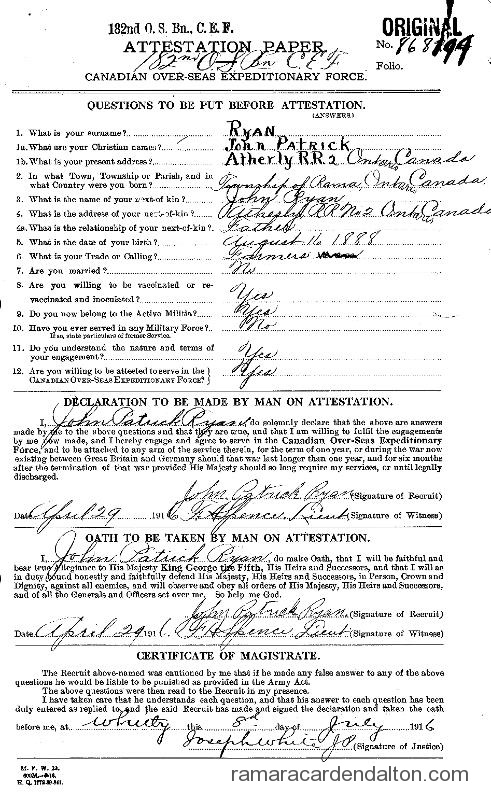 182nd O. S. Bn., C. E. F.
ORIGINAL
ATTESTATION PAPER.
No. 868199
182nd O S Bn C.E.F.
Folio.
CANADIAN OVER-SEAS EXPEDITIONARY FORCE.
QUESTIONS TO BE PUT BEFORE ATTESTATION.
(ANSWERS)
1. What is your surname? Ryan
1a. What are your Christian names? John Patrick
1b. What is your present address? Atherly R.R.2 Ontario Canada
2. In what Town, Township or Parish, and in
what Country were you born? Township of Rama, Ontario Canada
3. What is the name of your next-of-kin? John Ryan
4. What is the address of your next-of-kin? Atherly RR No 2 Ont Canada
4a. What is the relationship of your next-of-kin? Father
5. What is the date of your birth? August 16 1888
6. What is your Trade or Calling? Farmers
7. Are you married? No
8. Are you willing to be vaccinated or re-
vaccinated and inoculated? Yes
9. Do you now belong to the Active Militia? Yes
10. Have you ever served in any Military Force? No
If so, state particulars of former Service.
11. Do you understand the nature and terms of
your engagement? Yes
12. Are you willing to be attested to serve in the
CANADIAN OVER-SEAS EXPEDITIONARY FORCE? Yes
DECLARATION TO BE MADE BY MAN ON ATTESTATION.
I, John Patrick Ryan, do solemnly declare that the above are answers
made by me to the above questions and that they are true, and that I am willing to fulfil the engagements
by me now made, and I hereby engage and agree to serve in the Canadian Over-Seas Expeditionary
Force, and to be attached to any arm of the service therein, for the term of one year, or during the war now
existing between Great Britain and Germany should that war last longer than one year, and for six months
after the termination of that war provided His Majesty should so long require my services, or until legally
discharged.
John Patrick Ryan (Signature of Recruit)
Date April 29 1916 Lieut (Signature of Witness)
OATH TO BE TAKEN BY MAN ON ATTESTATION.
I, John Patrick Ryan, do make Oath, that I will be faithful and
bear true Allegiance to His Majesty King George the Fifth, His Heirs and Successors, and that I will as
in duty bound honestly and faithfully defend His Majesty, His Heirs and Successors, in Person, Crown and
Dignity, against all enemies, and will observe and obey all orders of His Majesty, His Heirs and Successors,
and of all the Generals and Officers set over me. So help me God.
John Patrick Ryan (Signature of Recruit)
Date April 29 1916. Lieut (Signature of Witness)
CERTIFICATE OF MAGISTRATE.
The Recruit above-named was cautioned by me that if he made any false answer to any of the above
questions he would be liable to be punished as provided in the Army Act.
The above questions were then read to the Recruit in my presence.
I have taken care that he understands each question, and that his answer to each question has been
duly entered as replied to, and the said Recruit has made and signed the declaration and taken the oath
before me, at Whitby this 8th day of July 1916
Joseph White JP (Signature of Justice)
M. F. W. 23.
ramaracardendalton.com